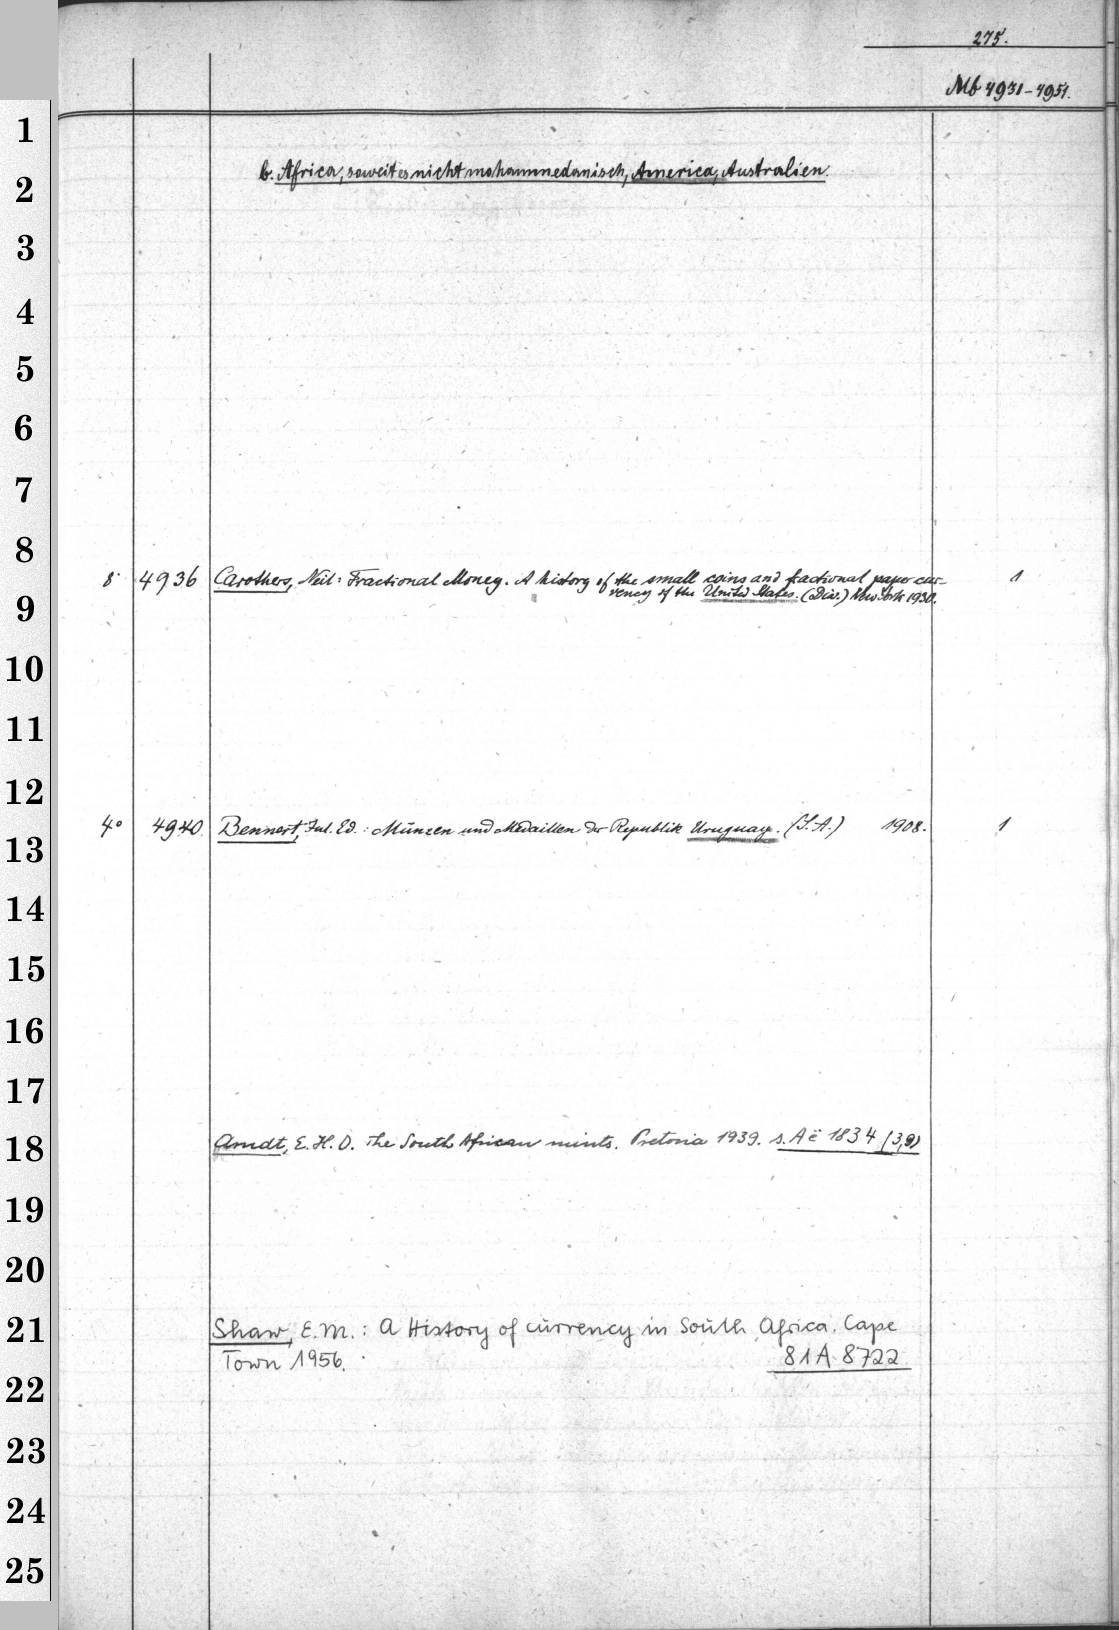 275.
Mb 4931-4951.
1
b. Africa, soweit es nicht mohammedanisch, America, Australien.
2
3
4
5
6
7
8
8° 4936 Carothers, Neil: Fractional Money. A history of the small coins and fractional paper cur- 1
rency of the United States. (Div.) New York 1930.
9
10
11
12
4° 4940. Bennert, Jul. Ed.: Münzen und Medaillen der Republik Uruguay. (S.A.) 1908. 1
13
14
15
16
17
18 Arndt, E.H.D. The South African mints. Pretoria 1939. s. Aë 1834 (3,9)
19
20
21 Shaw, E.M.: A History of currency in South Africa. Cape
Town 1956. 81 A 8722
22
23
24
25